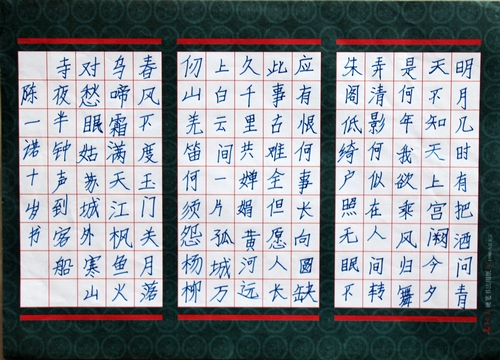 明月几时有把酒问青
天不知天上宫阙今夕
是何年我欲乘风归舞
弄清影何似在人间转
朱阁低绮户照无眠不
应有恨何事长向圆缺
此事古难全但愿人长
久千里共婵娟黄河远
上白云间一片孤城万
仞山羌笛何须怨杨柳
春风不度玉门关月落
乌啼霜满天江枫鱼火
对愁眠姑苏城外寒山
寺夜半钟声到客船
陈一诺十岁书